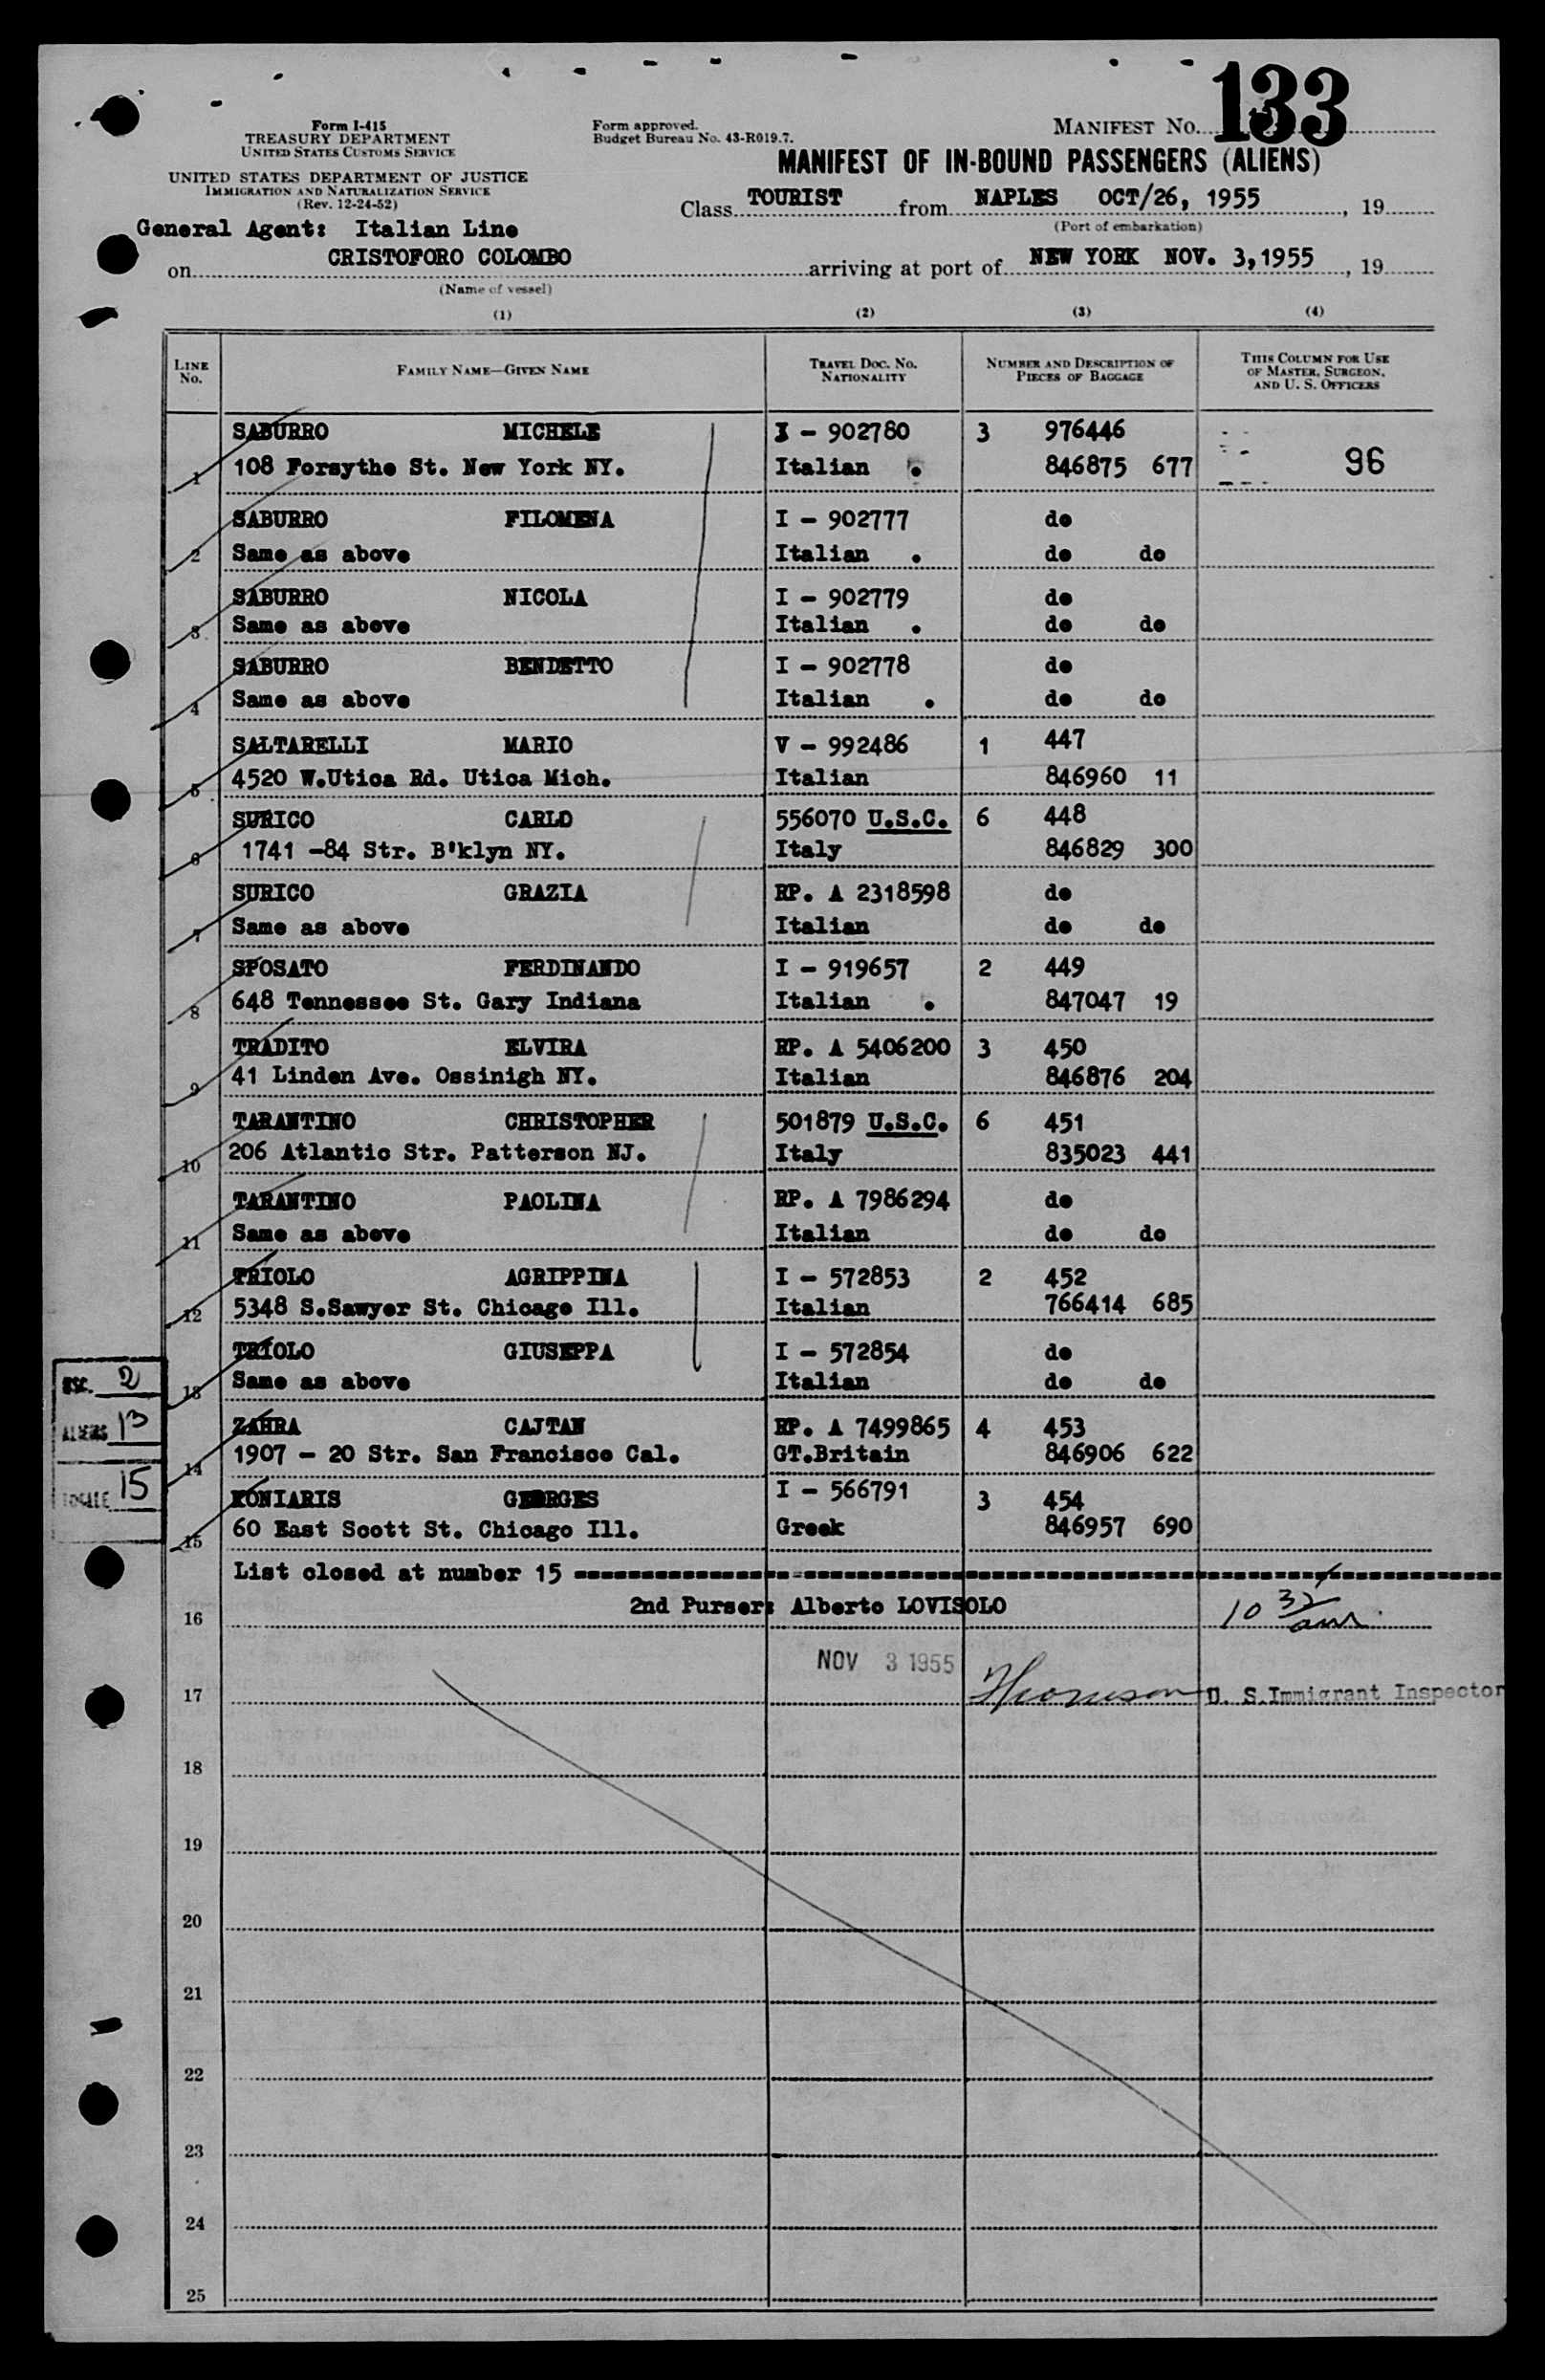 133
Form I-415
TREASURY DEPARTMENT
UNITED STATES CUSTOMS SERVICE
Form approved.
Budget Bureau No. 43-R019.7.
MANIFEST No.
UNITED STATES DEPARTMENT OF JUSTICE
IMMIGRATION AND NATURALIZATION SERVICE
(Rev. 12-24-52)
MANIFEST OF IN-BOUND PASSENGERS (ALIENS)
Class TOURIST from NAPLES OCT/26, 1955, 19
(Port of embarkation)
General Agent: Italian Line
on CRISTOFORO COLOMBO arriving at port of NEW YORK NOV. 3, 1955, 19
(Name of vessel)
(1) (2) (3) (4)
LINE No. FAMILY NAME—GIVEN NAME TRAVEL DOC. No. NATIONALITY NUMBER AND DESCRIPTION OF PIECES OF BAGGAGE THIS COLUMN FOR USE OF MASTER, SURGEON, AND U. S. OFFICERS
SABURRO MICHELE I - 902780 3 976446
1 108 Forsythe St. New York NY. Italian . 846875 677 96
SABURRO FILOMENA I - 902777 do
2 Same as above Italian . do do
SABURRO NICOLA I - 902779 do
3 Same as above Italian . do do
SABURRO BENDETTO I - 902778 do
4 Same as above Italian . do do
SALTARELLI MARIO V - 992486 1 447
5 4520 W.Utica Rd. Utica Mich. Italian 846960 11
SURICO CARLO 556070 U.S.C. 6 448
6 1741 -84 Str. B'klyn NY. Italy 846829 300
SURICO GRAZIA RP. A 2318598 do
7 Same as above Italian do do
SPOSATO FERDINANDO I - 919657 2 449
8 648 Tennessee St. Gary Indiana Italian . 847047 19
TRADITO ELVIRA RP. A 5406200 3 450
9 41 Linden Ave. Ossinigh NY. Italian 846876 204
TARANTINO CHRISTOPHER 501879 U.S.C. 6 451
10 206 Atlantic Str. Patterson NJ. Italy 835023 441
TARANTINO PAOLINA RP. A 7986294 do
11 Same as above Italian do do
TRIOLO AGRIPPINA I - 572853 2 452
12 5348 S.Sawyer St. Chicago Ill. Italian 766414 685
TRIOLO GIUSEPPA I - 572854 do
13 Same as above Italian do do
USC. 2
ALIENS 13
TOTALE 15
ZAHRA CAJTAN RP. A 7499865 4 453
14 1907 - 20 Str. San Francisco Cal. GT.Britain 846906 622
KONIARIS GEORGES I - 566791 3 454
15 60 East Scott St. Chicago Ill. Greek 846957 690
List closed at number 15
16 2nd Purser: Alberto LOVISOLO 10 32 am
NOV 3 1955
17 U. S. Immigrant Inspector
18
19
20
21
22
23
24
25